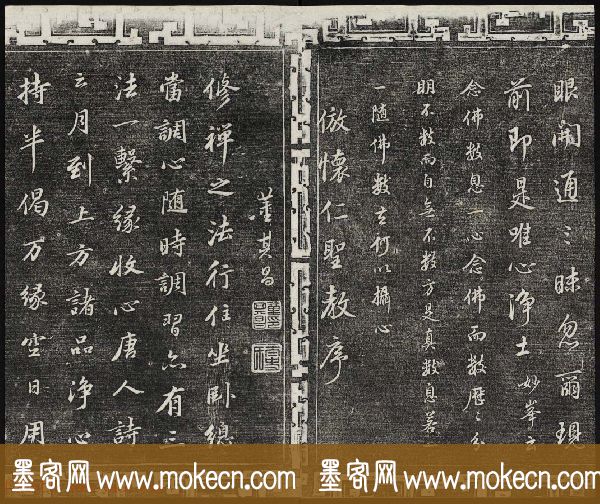 眼闹通〻昧忽爾現
前即是唯心淨土妙峯云
念佛數息一心念佛而數歷〻分
明不數而自
不數方是真數息若
一隨佛數去何以攝心
倣懷仁聖教序
董其昌
修禪之法行住坐卧總
當調心隨時調習亦有三
法一繫緣收心唐人詩
云月到上方諸品淨心
持半偈万緣空日用
墨客网 www.mokecn.com 墨客网 www.mokecn.com